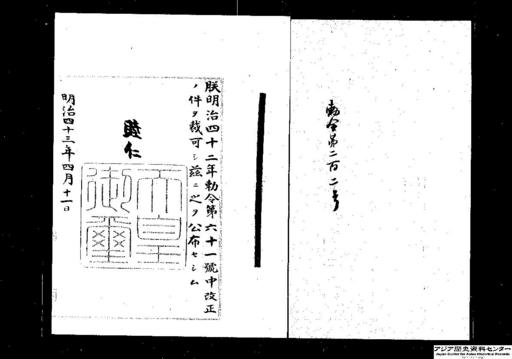 勅令第二百二号
朕明治四十二年勅令第六十一號中改正
ノ件ヲ裁可シ茲ニ之ヲ公布セシム
睦仁
天皇御璽
明治四十三年四月十一日
アジア歴史資料センター
Japan Center for Asian Historical Records